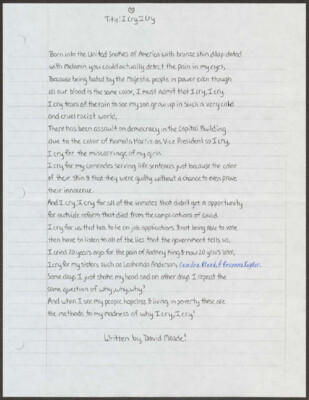 Title: I Cry, I Cry
Born into the United Snakes of America with bronze skin dilapidated
with Melanin you could actually detect the pain in my eyes,
Because being hated by the Majestic people in power even though
all our blood is the same color, I must admit that I cry, I cry.
I cry tears of the rain to see my son grow up in such a very cold
and cruel racist world,
There has been assault on democracy in the Capital Building
due to the color of Kamala Harris as Vice President so I cry,
I cry for the miscarriage of my girls.
I cry for my comrades serving life sentences just because the color
of their skin & that they were guilty without a chance to even prove
their innocence.
And I cry, I cry for all of the inmates that didn't get a opportunity
for outside reform that died from the complications of covid.
I cry for us that has to lie on job applications & not being able to vote
then have to listen to all of the lies that the government tells us,
I cried 20 years ago for the pain of Rodney King & now 20 years later,
I cry for my sisters such as Lashonda Anderson, Sandra Bland, & Breonna Taylor.
Some days I just shake my head and on other days I repeat the
same question of why, why, why?
And when I see my people hopeless & living in poverty these are
the methods to my madness of why I cry, I cry!
Written by David Meade!